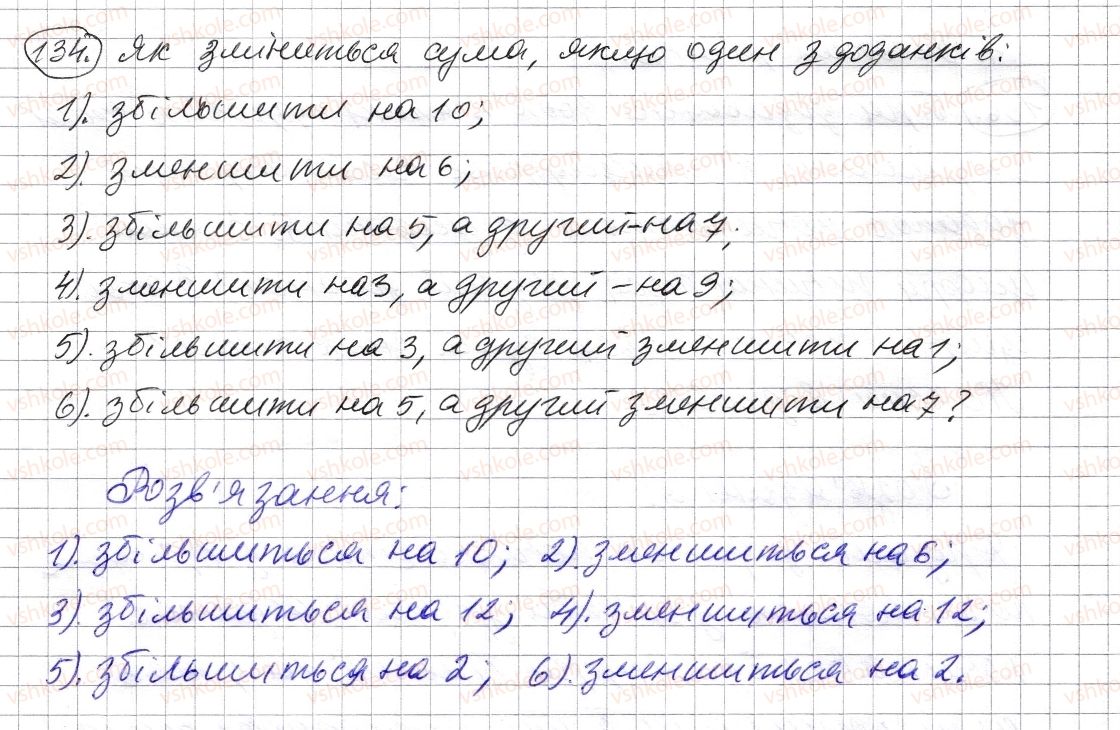 134. Як зміниться сума, якщо один з доданків:
1). збільшити на 10;
2). зменшити на 6;
3). збільшити на 5, а другий – на 7;
4). зменшити на 3, а другий – на 9;
5). збільшити на 3, а другий зменшити на 1;
6). збільшити на 5, а другий зменшити на 7?
Розв'язання:
1). збільшиться на 10; 2). зменшиться на 6;
3). збільшиться на 12; 4). зменшиться на 12;
5). збільшиться на 2; 6). зменшиться на 2.